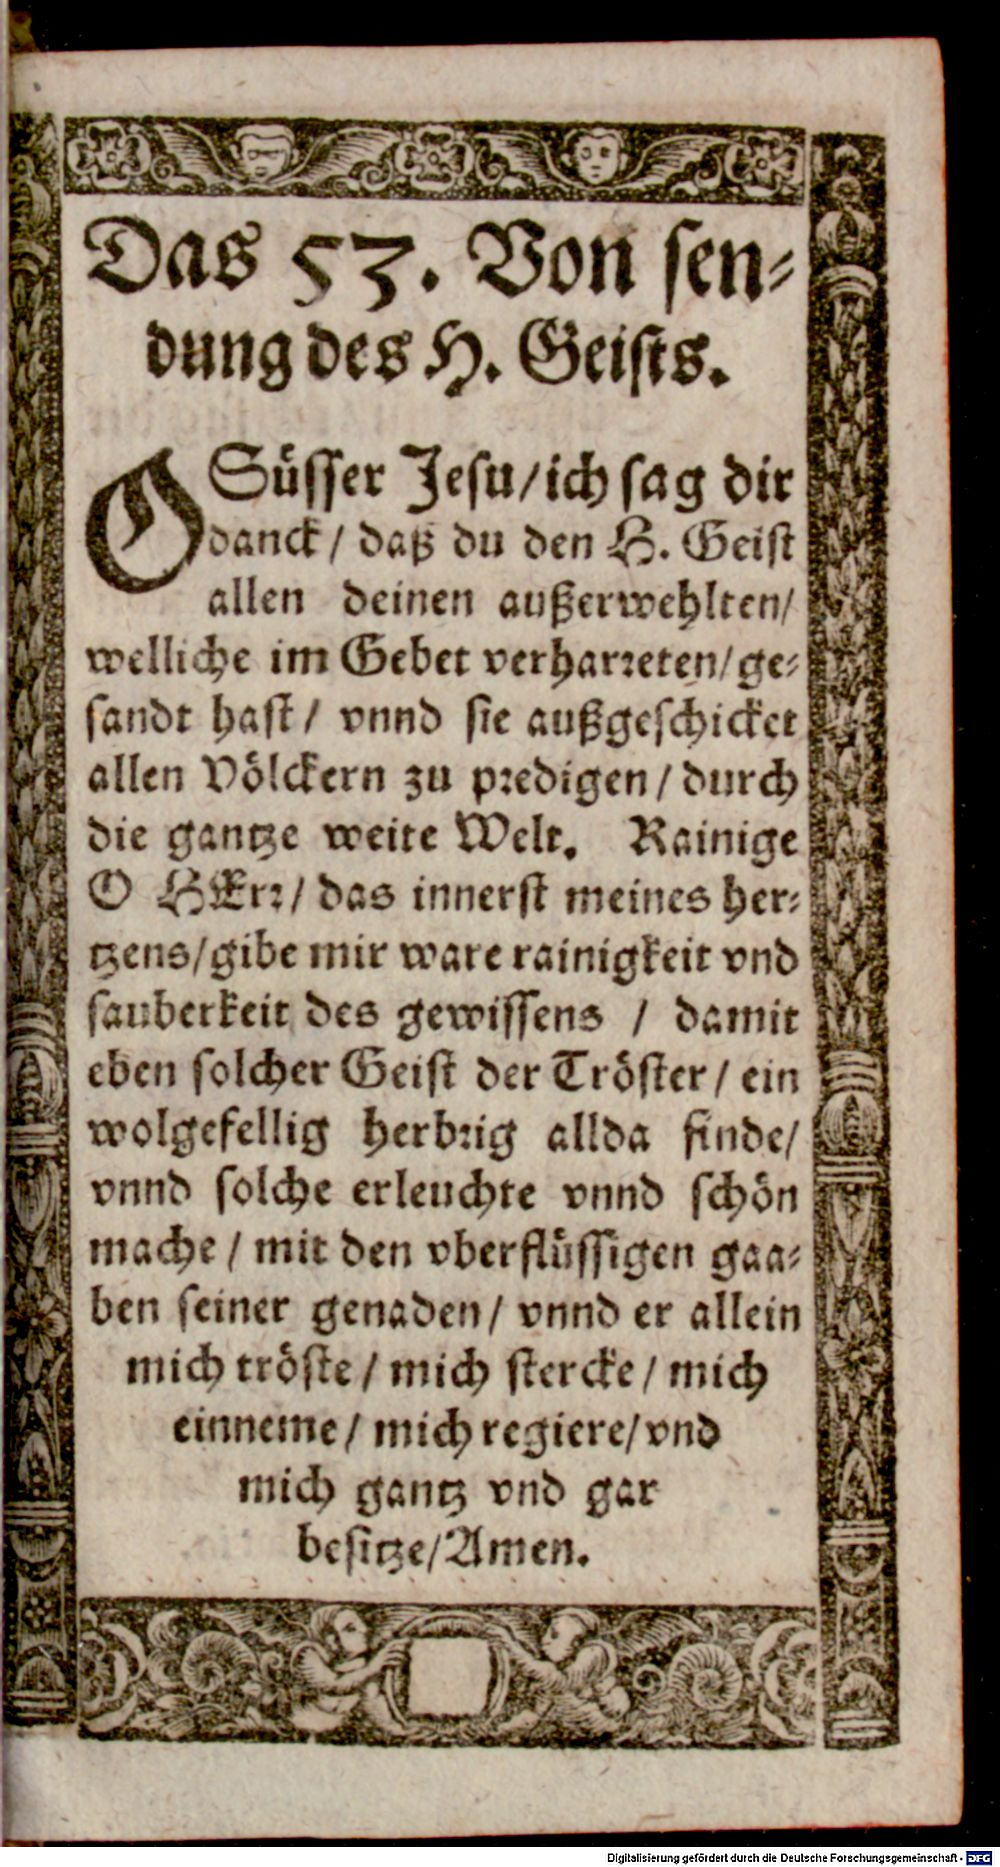 Das 53. Von sen-
dung des H. Geists.
O Süsser Jesu/ ich sag dir
danck/ daß du den H. Geist
allen deinen außerwehlten/
welliche im Gebet verharreten/ ge-
sandt hast/ vnnd sie außgeschicket
allen Völckern zu predigen/ durch
die gantze weite Welt. Rainige
O HErr/ das innerst meines her-
tzens/ gibe mir ware rainigkeit vnd
sauberkeit des gewissens / damit
eben solcher Geist der Tröster/ ein
wolgefellig herbrig allda finde/
vnnd solche erleuchte vnnd schön
mache/ mit den vberflüssigen gaa-
ben seiner genaden/ vnnd er allein
mich tröste/ mich stercke/ mich
einneme/ mich regiere/ vnd
mich gantz vnd gar
besitze/ Amen.
Digitalisierung gefördert durch die Deutsche Forschungsgemeinschaft - DFG